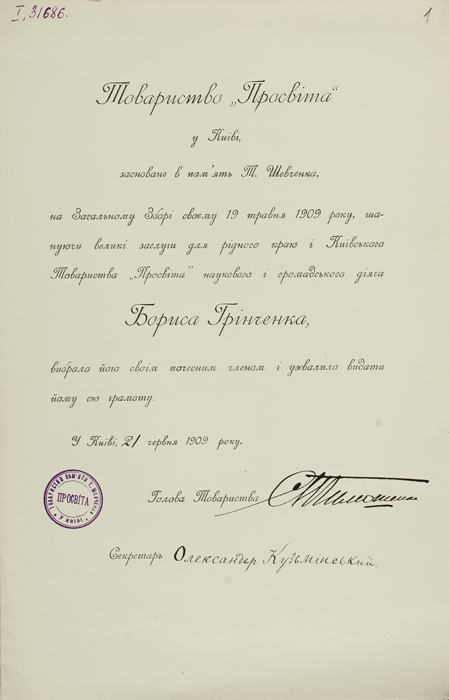 I, 31686.
1
Товариство „Просвіта“
у Київі,
засноване в пам'ять Т. Шевченка,
на Загальному Зборі своєму 19 травня 1909 року, ша-
нуючи великі заслуги для рідного краю і Київського
Товариства „Просвіта“ наукового і громадського діяча
Бориса Грінченка,
вибрало його своїм почесним членом і ухвалило видати
йому сю грамоту.
У Київі, 21 червня 1909 року.
ТОВАРИСТВО ПАМ'ЯТИ Т. ШЕВЧЕНКА
ПРОСВІТА
У КИЇВІ
Голова Товариства
Секретарь Олександер Кузьмінський.